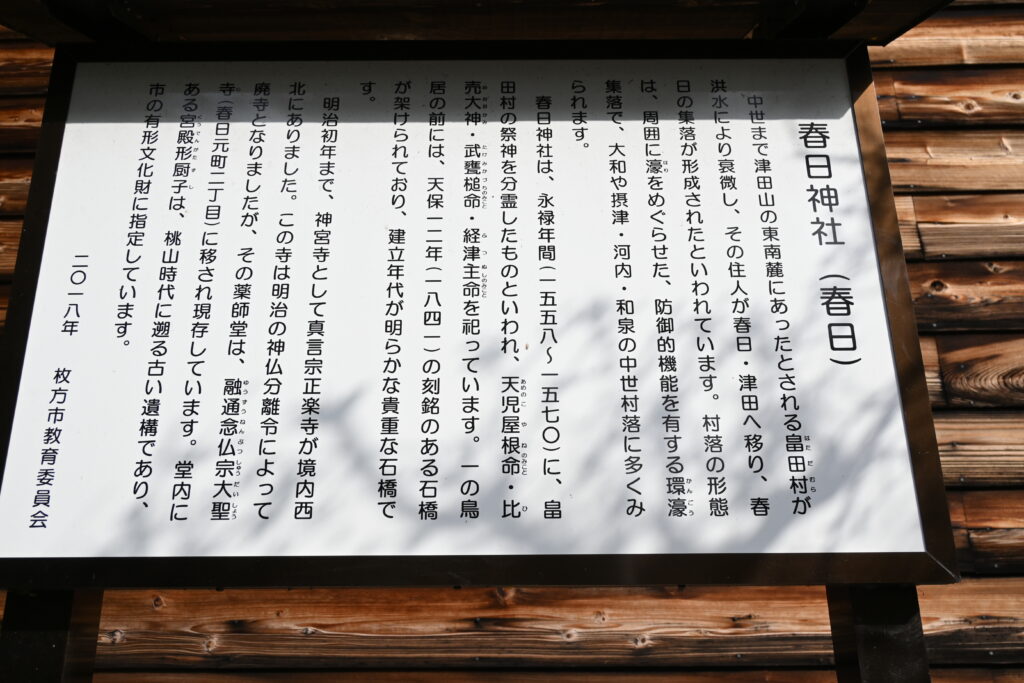 春日神社（春日）
中世まで津田山の東南麓にあったとされる畠田村が
洪水により衰微し、その住人が春日・津田へ移り、春
日の集落が形成されたといわれています。村落の形態
は、周囲に濠をめぐらせた、防御的機能を有する環濠
集落で、大和や摂津・河内・和泉の中世村落に多くみ
られます。
春日神社は、永禄年間（一五五八～一五七〇）に、畠
田村の祭神を分霊したものといわれ、天児屋根命・比
売大神・武甕槌命・経津主命を祀っています。一の鳥
居の前には、天保一二年（一八四一）の刻銘のある石橋
が架けられており、建立年代が明らかな貴重な石橋で
す。
明治初年まで、神宮寺として真言宗正楽寺が境内西
北にありました。この寺は明治の神仏分離令によって
廃寺となりましたが、その薬師堂は、融通念仏宗大聖
寺（春日元町二丁目）に移され現存しています。堂内に
ある宮殿形厨子は、桃山時代に遡る古い遺構であり、
市の有形文化財に指定しています。
二〇一八年　枚方市教育委員会